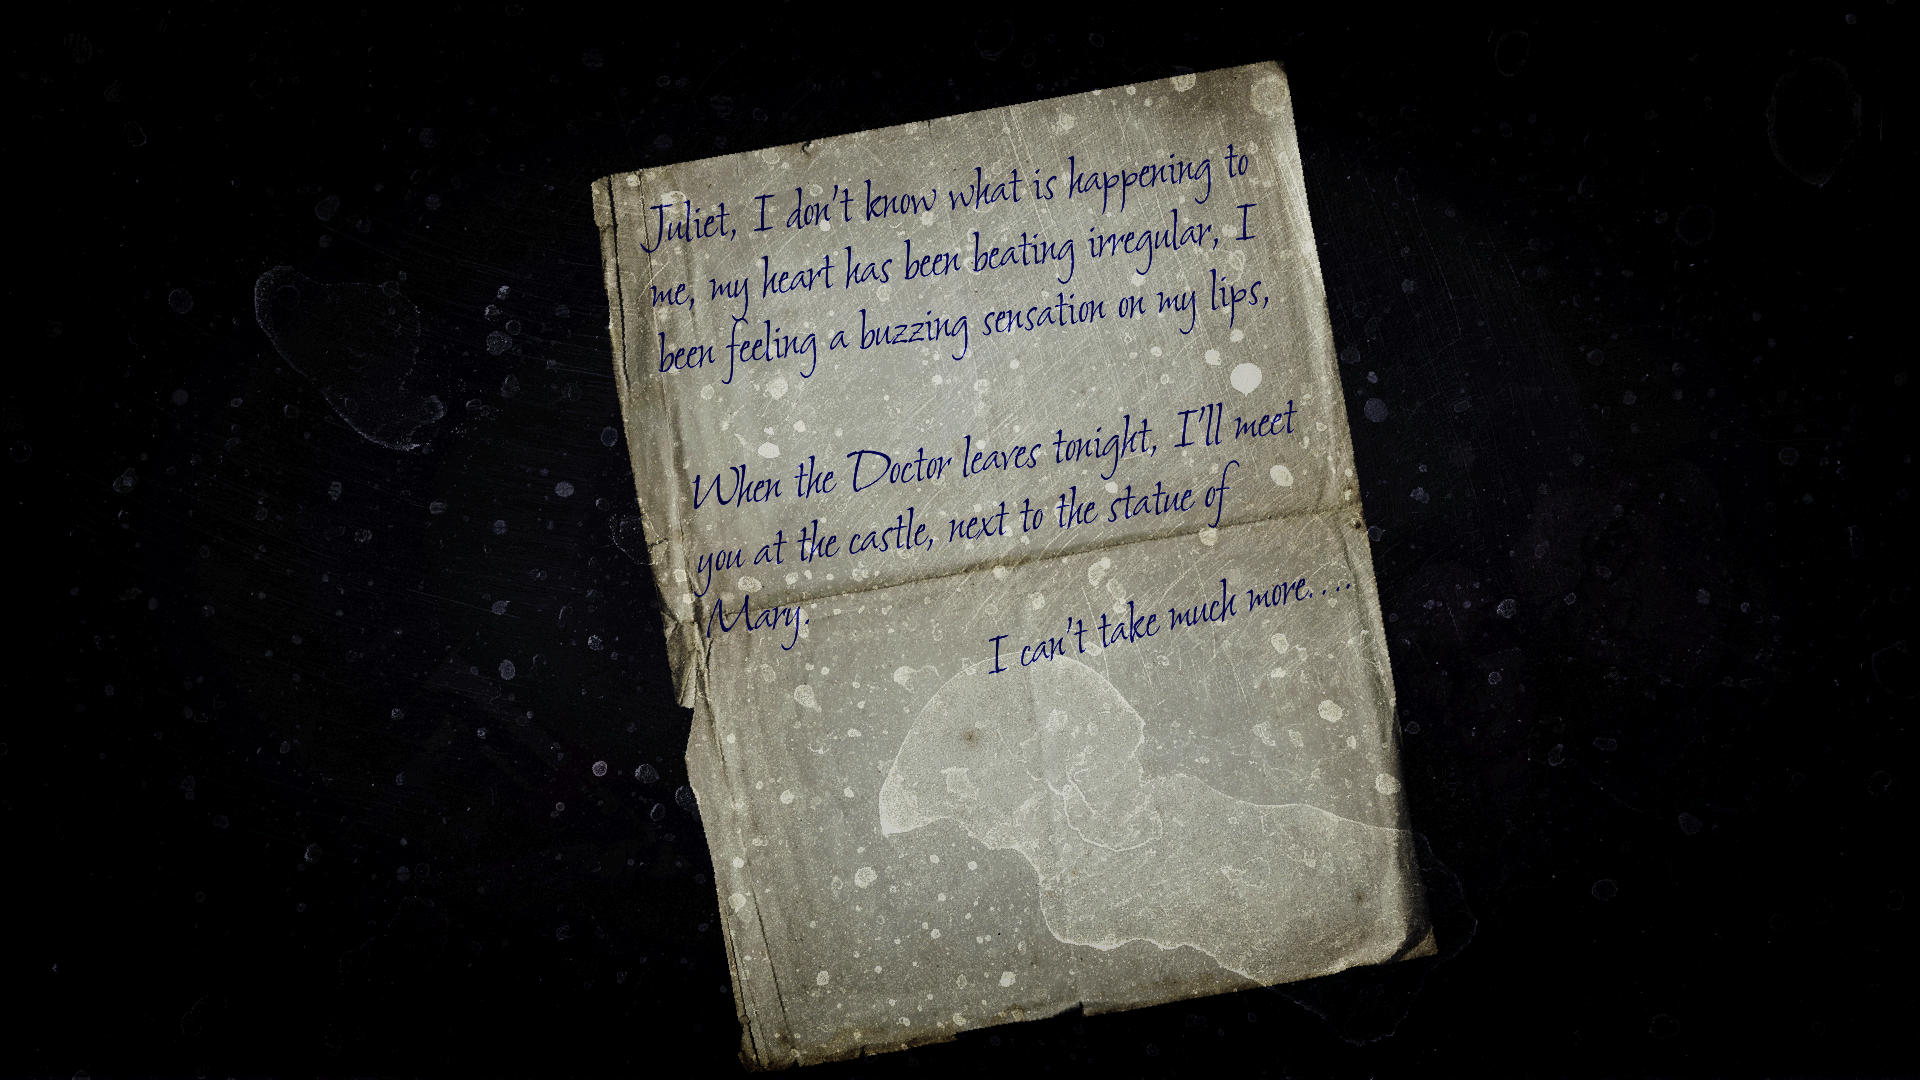 Juliet, I don't know what is happening to
me, my heart has been beating irregular, I
been feeling a buzzing sensation on my lips,
When the Doctor leaves tonight, I'll meet
you at the castle, next to the statue of
Mary.
I can't take much more....